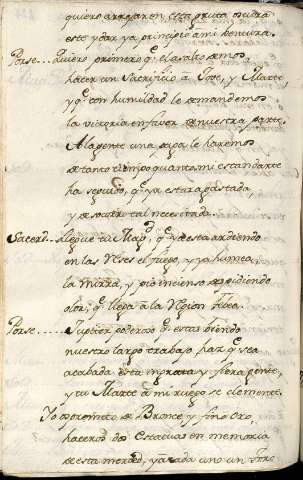 quiero arrojar en esta gruta oscura
este y dar ya principio a mi ventura.
Porse... Quiero primero q̃ el asalto demos,
hacer un Sacrificio à Jove, y Marte,
y q̃ con humildad le demandemos
la victoria en favor de nuestra parte.
A la gente una paga le haremos
de tanto tiempo quanto mi estandarte
ha seguido, q̃ ya estara gastada,
y de sueldo tal necesitada.
Sacerd... Llegue tu Mag.d, q̃ ya esta ardiendo
en las el fuego, y ya humea,
la Mirra, y el incienso despidiendo
olor, q̃ llega a la Region
Porse...... Jupiter poderoso q̃ estas viendo
nuestro largo trabajo, haz q̃ sea
acabada esta ingrata y fiera gente,
y tu Marte à mi ruego se clemente.
Yo os prometo de Bronce y fino Oro
haceros dos Estatuas en memoria
de esta merced, y a cada uno un